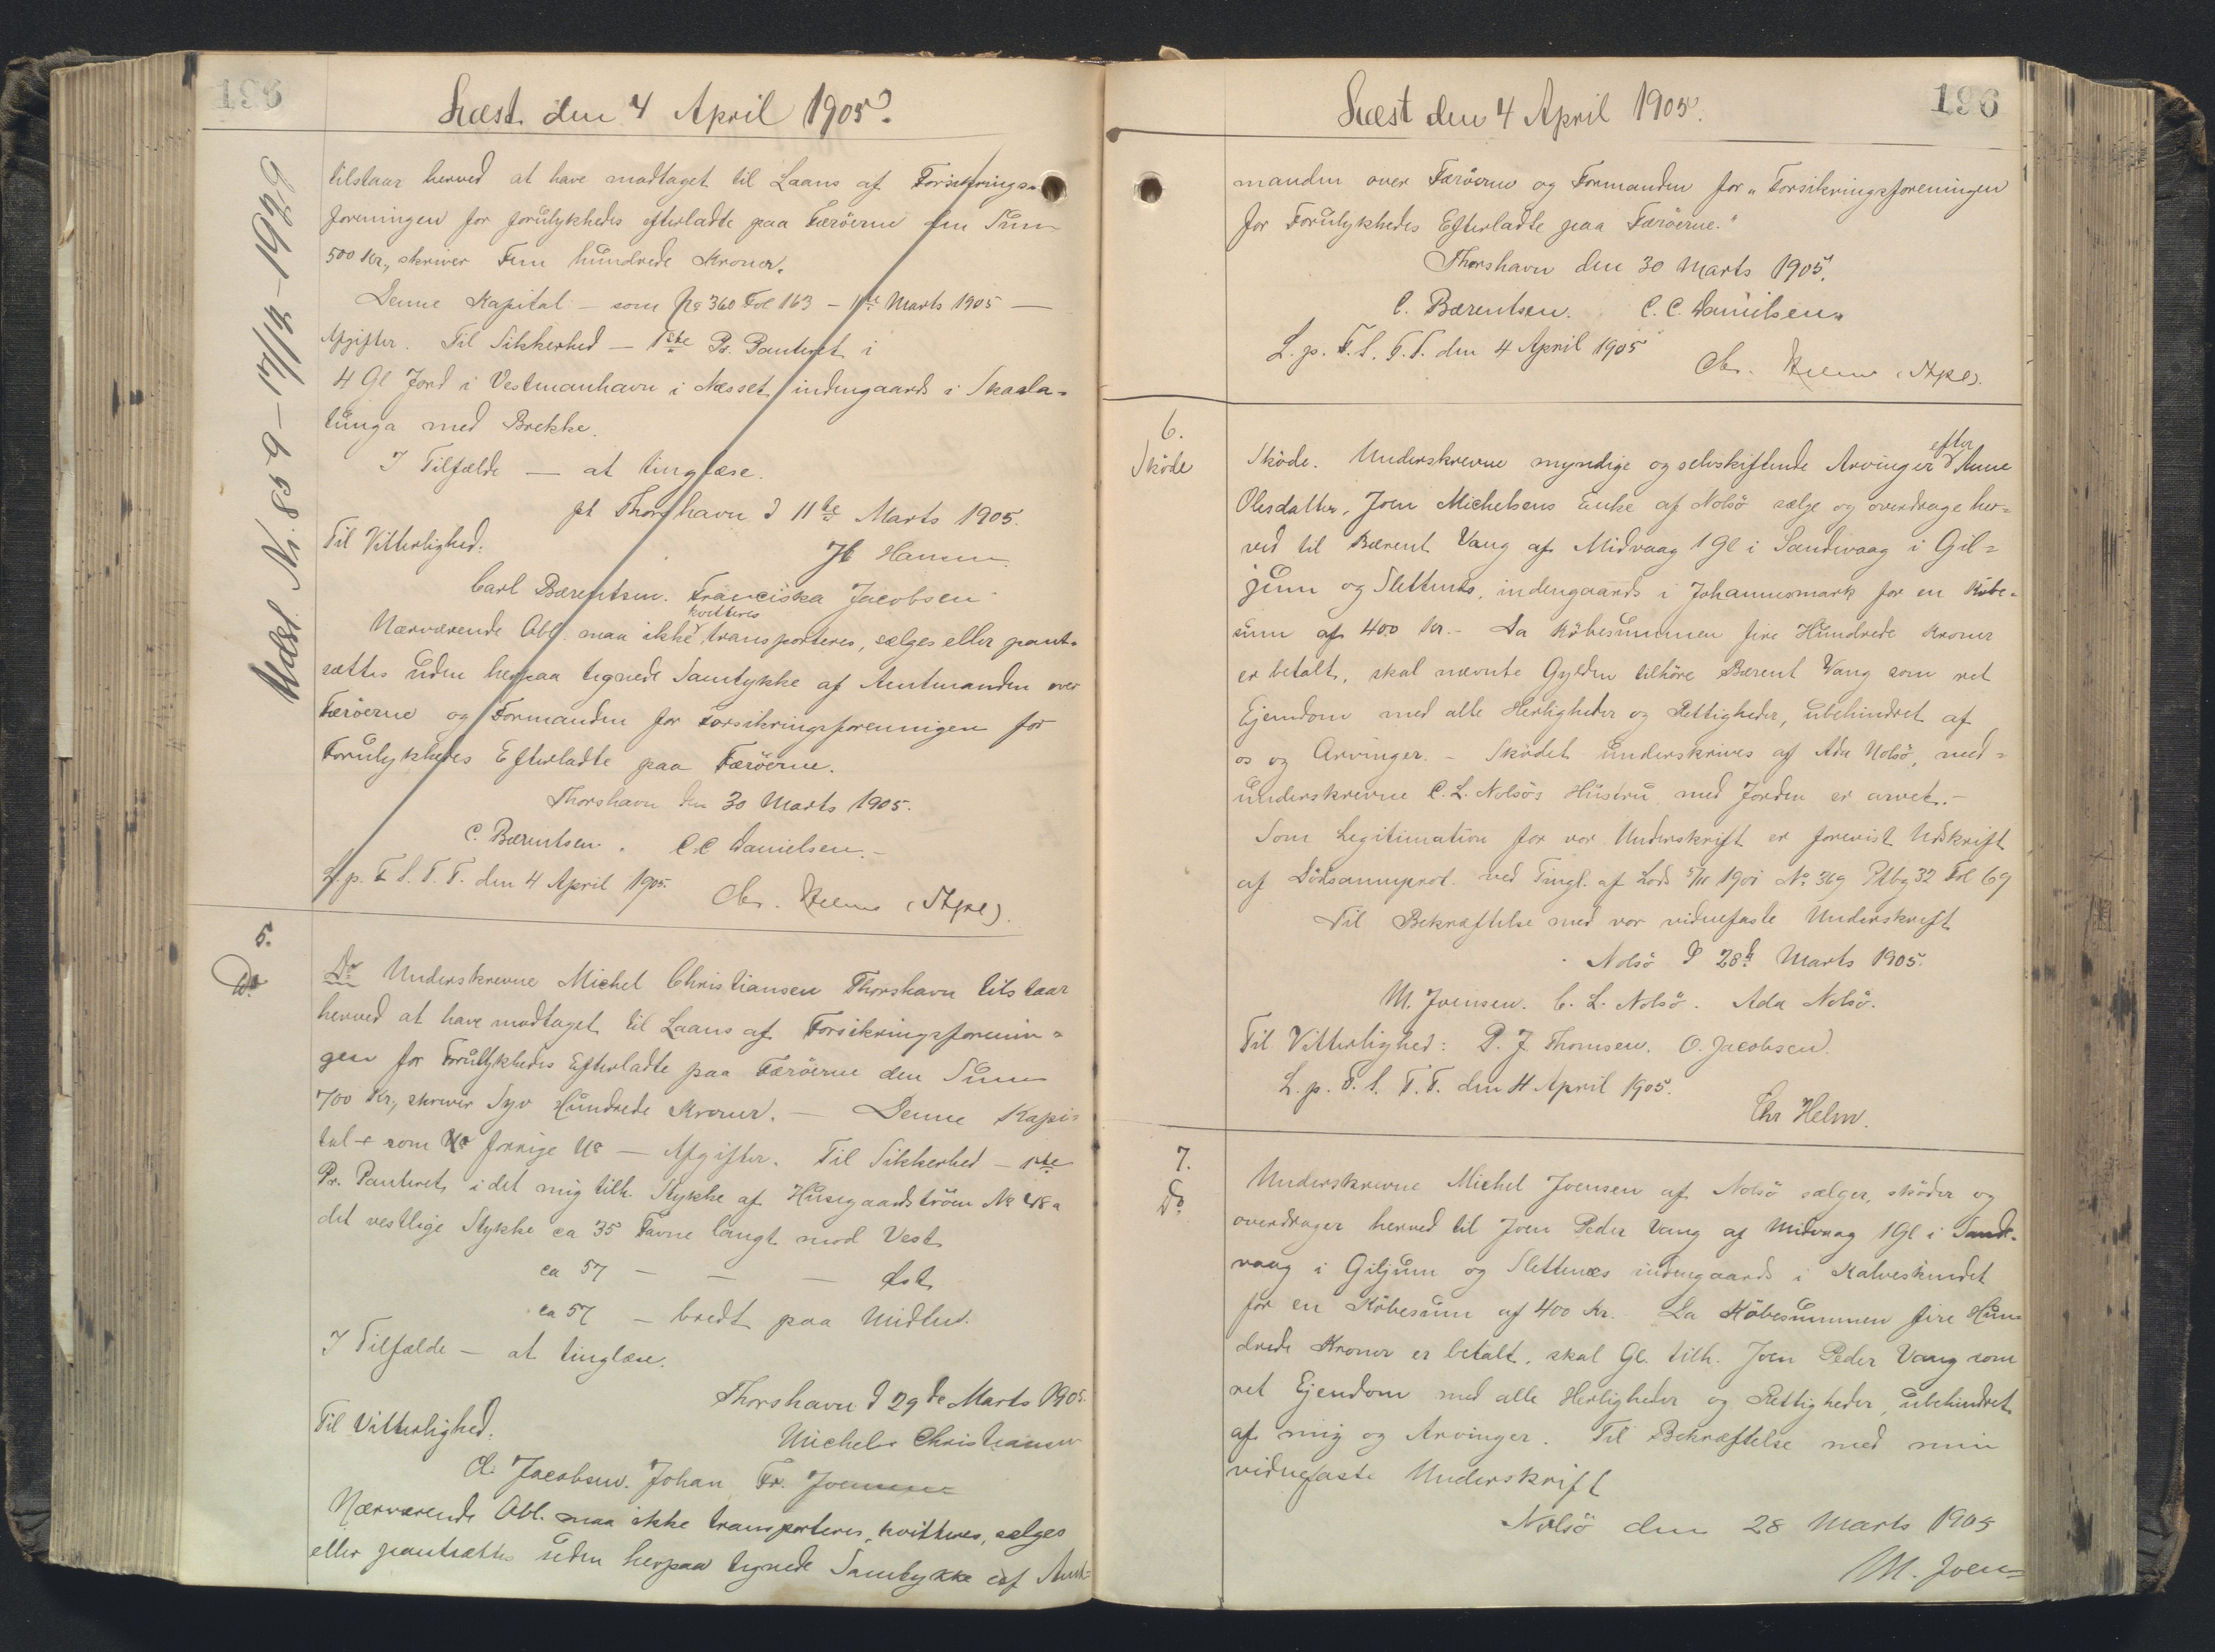 196
Læst den 4 April 1905.
Udsl. Nr. 859 - 17/12 - 1929
tilstaar herved at have modtaget til Laans af Forsikrings-
foreningen for forulykkedes efterladte paa Færöerne den Sum
500 Kr., skriver Fem hundrede Kroner.
Denne Kapital - som No 360 Fol 163 - 11te Marts 1905 -
Afgifter. Til Sikkerhed - 1ste Pr. Panteret i
4 Gl Jord i Vestmanhavn i Næsset indengaards i Skaala-
tunga med Brekke.
I Tilfælde - at tinglæse.
pt Thorshavn d 11te Marts 1905.
Til Vitterlighed.
Hansen
Carl Bærentsen. Franciska Jacobsen
kvitteres
Nærværende Obl. maa ikke transporteres, sælges eller pant-
sættes uden herpaa tegnede Samtykke af Amtmanden over
Færöerne og Formanden for Forsikringsforenningen for
Forulykkedes Efterladte paa Færöerne.
Thorshavn den 30 Marts 1905.
C. Bærentsen. C C Danielsen.-
L. p. F. S. T. T. den 4 April 1905.
Chr. Helms (Stpr).
5.
Do
Do Underskrevne Michel Christiansen Thorshavn tilstaar
herved at have modtaget til Laans af Forsikringsforenin-
gen for Forulykkedes Efterladte paa Færöerne den Sum
700 Kr., skriver Syv Hundrede Kroner. - Denne Kapi-
tal - som No forrige No - Afgifter. Til Sikkerhed - 1ste
Pr. Panteret i det mig tilh. Stykke af Husegaardströen No 48a
det vestlige Stykke ca 35 Favne langt mod Vest
ca 57 - - - Øst
ca 57 - bredt paa Midten.
I Tilfælde - at tinglæse.
Thorshavn d 29de Marts 1905.
Til Vitterlighed.
Michel Christiansen
Jacobsen. Johan Fr. Joensen
Nærværende Obl. maa ikke transporteres, kvitteres, sælges
eller pantsættes uden herpaa tegnede Samtykke af Amt-
196
Læst den 4 April 1905.
manden over Færöerne og Formanden for "Forsikringsforeningen
for Forulykkedes Efterladte paa Færöerne."
Thorshavn den 30 Marts 1905.
C. Bærentsen. C. C. Danielsen.
L. p. F. S. T. T. den 4 April 1905
Chr. Helms (Stpr).
6.
Sköde
efter
Sköde. Underskrevne myndige og selvskiftende Arvinger Anne
Olesdatter, Joen Michelsens Enke af Nolsö sælge og overdrage her-
ved til Bærent Vang af Midvaag 1 Gl i Sandvaag i Gil-
jum og Slettenæs, indengaards i Johannesmark for en Köbe-
sum af 400 Kr. - Da Köbesummen fire Hundrede Kroner
er betalt, skal nævnte Gylden tilhöre Bærent Vang som ret
Ejendom med alle Herligheder og Rettigheder, ubehindret af
os og Arvinger. - Sködet underskrives af Ada Nolsö, med-
underskrevne C. L. Nolsös Hustru, med Jorden er arvet.-
Som Legitimation for vor Underskrift er forevist Udskrift
af Dödsanmprot. ved Tingl. af Lods 5/11 1901 No 369 Ptbg 32 Fol 69
Til Bekræftelse med vor vidnefaste Underskrift
Nolsö d 28d Marts 1905.
M. Joensen. C. L. Nolsö. Ada Nolsö.
Til Vitterlighed: P. J. Thomsen. O. Jacobsen.
L. p. F. S. T. T. den 4 April 1905.
Chr Helm.
7.
Do
Underskrevne Michel Joensen af Nolsö sælger, sköder og
overdrager herved til Joen Peder Vang af Midvaag 1 Gl i Sand-
vaag i Giljum og Slettenæs indengaards i Kalveskindet
for en Köbesum af 400 Kr. Da Köbesummen fire Hun-
drede Kroner er betalt, skal Gl. tilh. Joen Peder Vang som
ret Ejendom med alle Herligheder og Rettigheder, ubehindret
af mig og Arvinger. Til Bekræftelse med min
vidnefaste Underskrift
Nolsö den 28 Marts 1905
M. Joen-